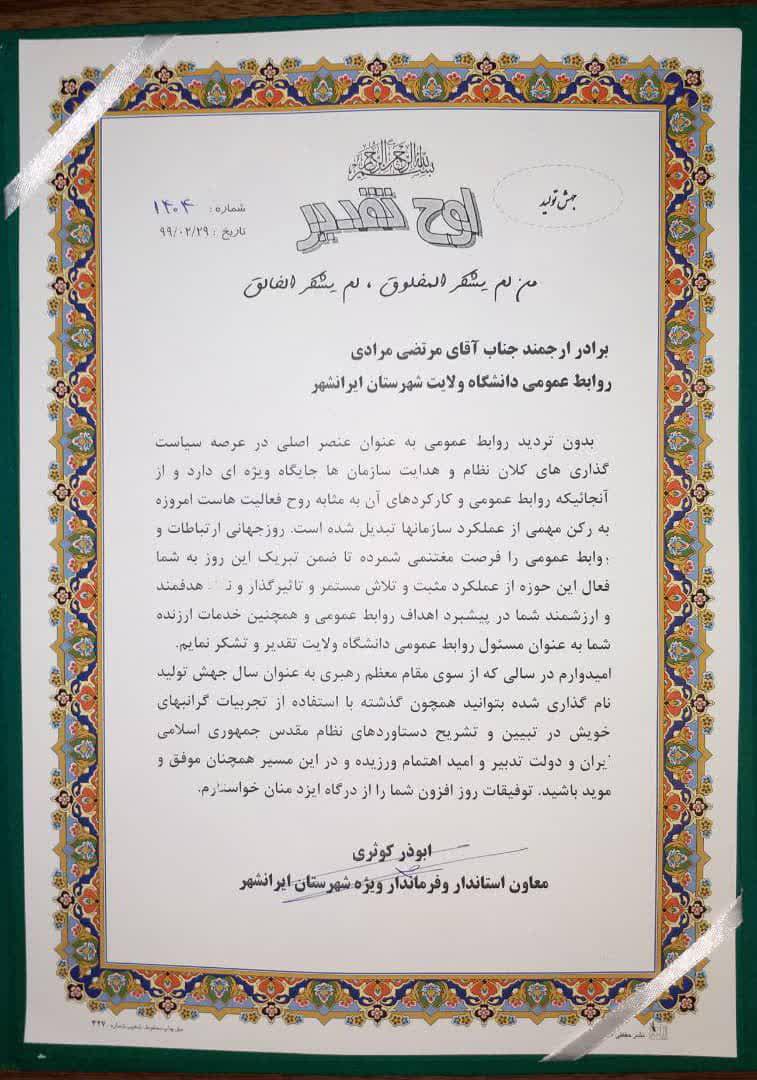 بسم الله الرحمن الرحیم
جهش تولید
لوح تقدیر
شماره : ۱۴۰۴
تاریخ : ۹۹/۰۲/۲۹
من لم یشکر المخلوق ، لم یشکر الخالق
برادر ارجمند جناب آقای مرتضی مرادی
روابط عمومی دانشگاه ولایت شهرستان ایرانشهر
بدون تردید روابط عمومی به عنوان عنصر اصلی در عرصه سیاست
گذاری های کلان نظام و هدایت سازمان ها جایگاه ویژه ای دارد و از
آنجائیکه روابط عمومی و کارکردهای آن به مثابه روح فعالیت هاست امروزه
به رکن مهمی از عملکرد سازمانها تبدیل شده است. روزجهانی ارتباطات و
روابط عمومی را فرصت مغتنمی شمرده تا ضمن تبریک این روز به شما
فعال این حوزه از عملکرد مثبت و تلاش مستمر و تاثیرگذار و هدفمند
و ارزشمند شما در پیشبرد اهداف روابط عمومی و همچنین خدمات ارزنده
شما به عنوان مسئول روابط عمومی دانشگاه ولایت تقدیر و تشکر نمایم.
امیدوارم در سالی که از سوی مقام معظم رهبری به عنوان سال جهش تولید
نام گذاری شده بتوانید همچون گذشته با استفاده از تجربیات گرانبهای
خویش در تبیین و تشریح دستاوردهای نظام مقدس جمهوری اسلامی
ایران و دولت تدبیر و امید اهتمام ورزیده و در این مسیر همچنان موفق و
موید باشید. توفیقات روز افزون شما را از درگاه ایزد منان خواستارم.
ابوذر کوثری
معاون استاندار وفرماندار ویژه شهرستان ایرانشهر